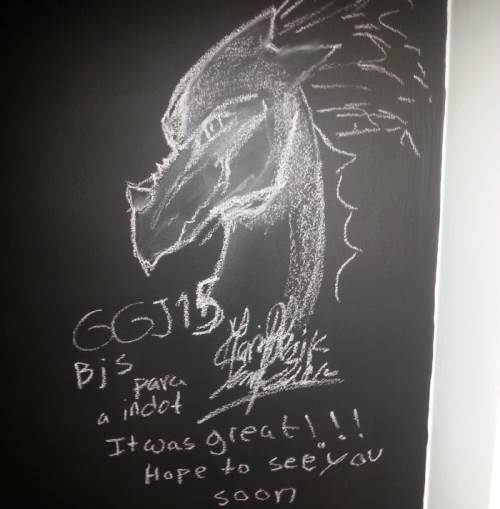 GGJ15
Bjs
para
a indot
It was great!!!
Hope to see you
soon